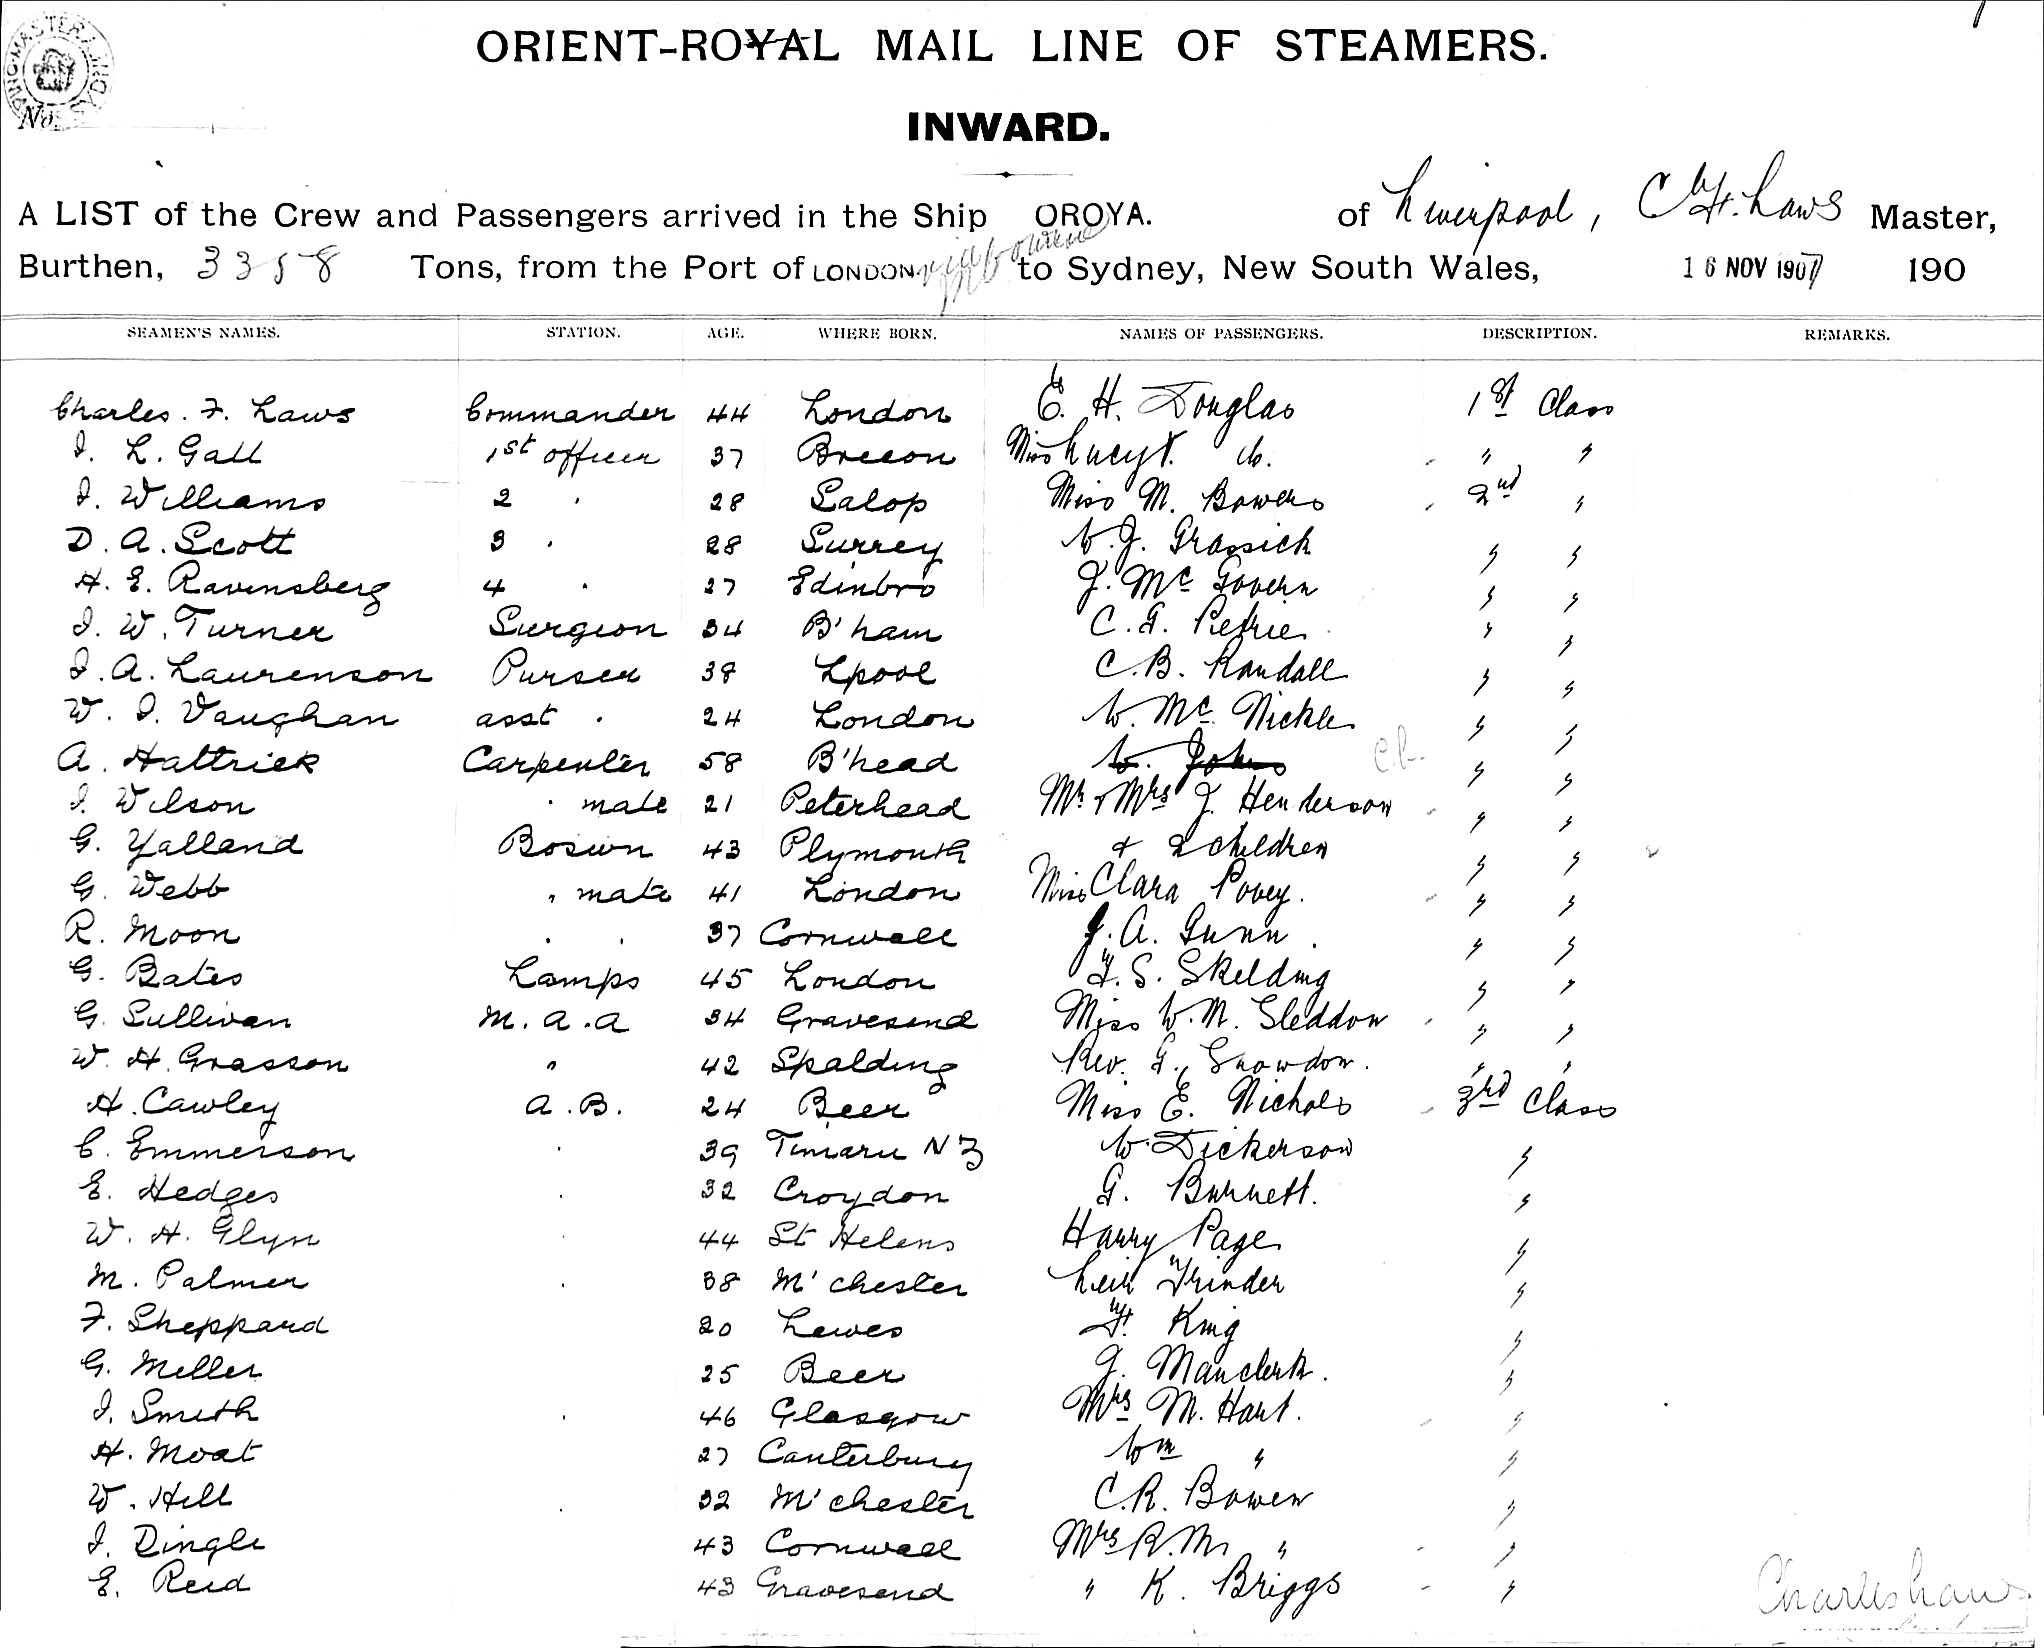 ORIENT-ROYAL MAIL LINE OF STEAMERS.
INWARD.
No.
A LIST of the Crew and Passengers arrived in the Ship OROYA. of Liverpool, C. F. Laws Master,
Burthen, 3358 Tons, from the Port of LONDON via Melbourne to Sydney, New South Wales, 16 NOV 1907 190
SEAMEN'S NAMES. STATION. AGE. WHERE BORN. NAMES OF PASSENGERS. DESCRIPTION. REMARKS.
Charles. F. Laws Commander 44 London E. H. Douglas 1st Class
J. L. Gall 1st officer 37 Brecon Miss Lucy F. do. " "
J. Williams 2 " 28 Salop Miss M. Bowers 2nd "
D. A. Scott 3 " 28 Surrey W. J. Grassick " "
H. E. Ravensberg 4 " 27 Edinbro J. Mc Govern " "
J. W. Turner Surgeon 34 B'ham C. G. Petrie " "
J. A. Laurenson Purser 38 Lpool C. B. Randall " "
W. J. Vaughan asst " 24 London W. Mc Nickle " "
A. Hattrick Carpenter 58 B'head W. Johns " "
J. Wilson " mate 21 Peterhead Mr & Mrs J. Henderson " "
G. Yalland Boswn 43 Plymouth & 2 children " "
G. Webb " mate 41 London Miss Clara Povey. " "
R. Moon " " 37 Cornwall J. A. Gunn " "
G. Bates Lamps 45 London F. S. Skelding " "
G. Sullivan M. A. A 34 Gravesend Miss W. M. Sleddon " "
W. H. Grasson " 42 Spalding Rev. G. Snowdon. " "
H. Cawley A. B. 24 Beer Miss E. Nichols 3rd Class
C. Emmerson " 39 Timaru N Z W. Dickerson "
E. Hedges " 32 Croydon G. Burnett. "
W. H. Glyn " 44 St Helens Harry Page "
M. Palmer " 38 M'chester Trinder "
F. Sheppard 20 Lewes F. King "
G. Meller 25 Beer J. Manclerk. "
J. Smith " 46 Glasgow Mrs M. Hart. "
H. Moat 27 Canterbury Wm " "
W. Hill " 32 M'chester C. R. Bowen "
J. Dingle 43 Cornwall Mrs R. M. " "
E. Reid 43 Gravesend " K. Briggs "
Charles Laws